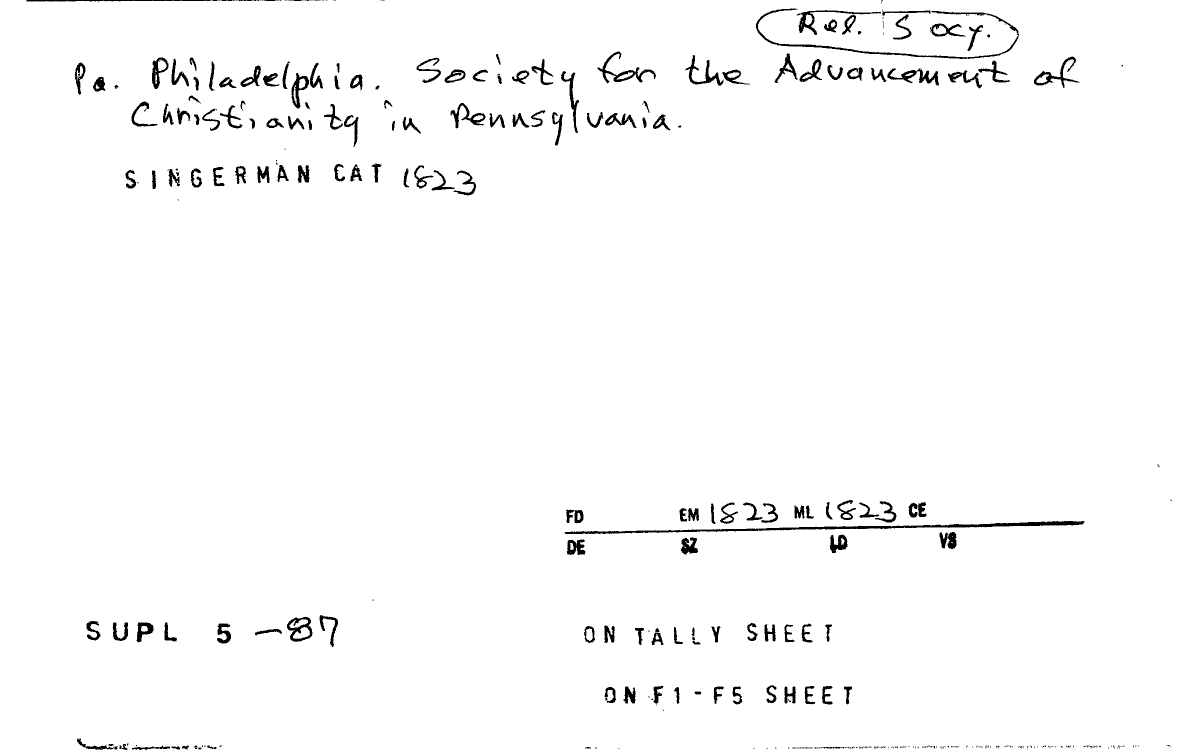 Rel. Socy.
Pa. Philadelphia. Society for the Advancement of
Christianity in Pennsylvania.
SINGERMAN CAT 1823
FD EM 1823 ML 1823 CE
DE SZ LD VS
SUPL 5 -87 ON TALLY SHEET
ON F1-F5 SHEET